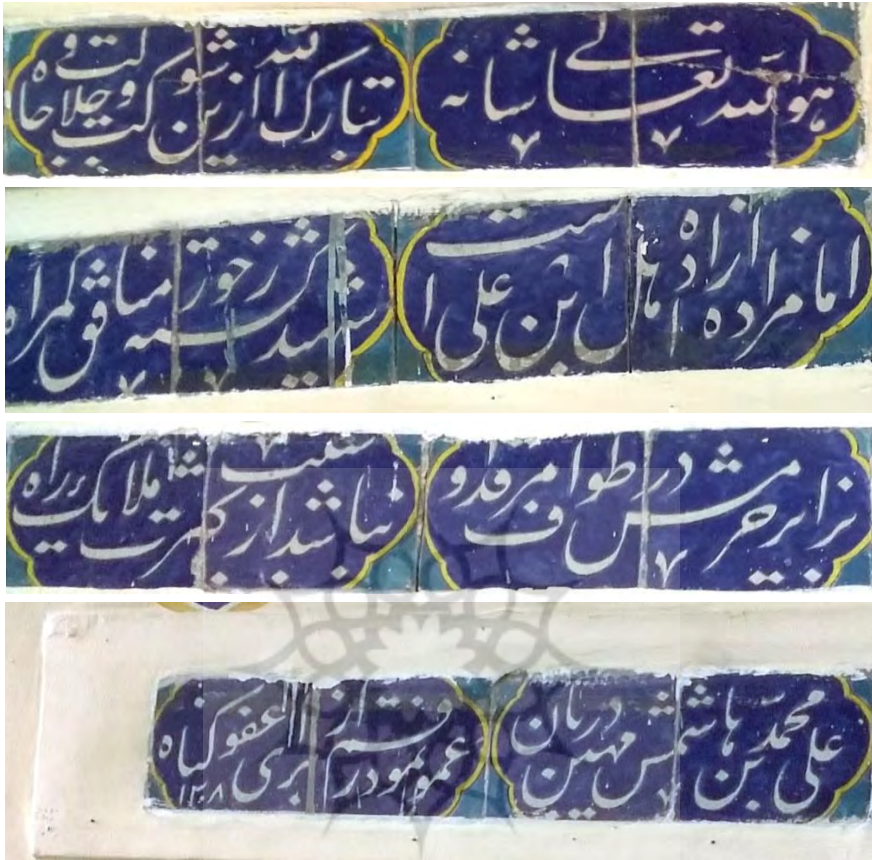 هو الله تعالی شانه
تبارک الله ازین شوکت و جلالت و جاه
امامزاده آزاده اهل ابن علی است
شهید گشته ز جور منافق گمراه
بزایر حرمش در طواف مرقد او
نباشد از کثرت ملائک راه
علی محمد بن هاشمش مهین دربان
عمو نمود رقم از برای عفو گناه ۱۳۰۸